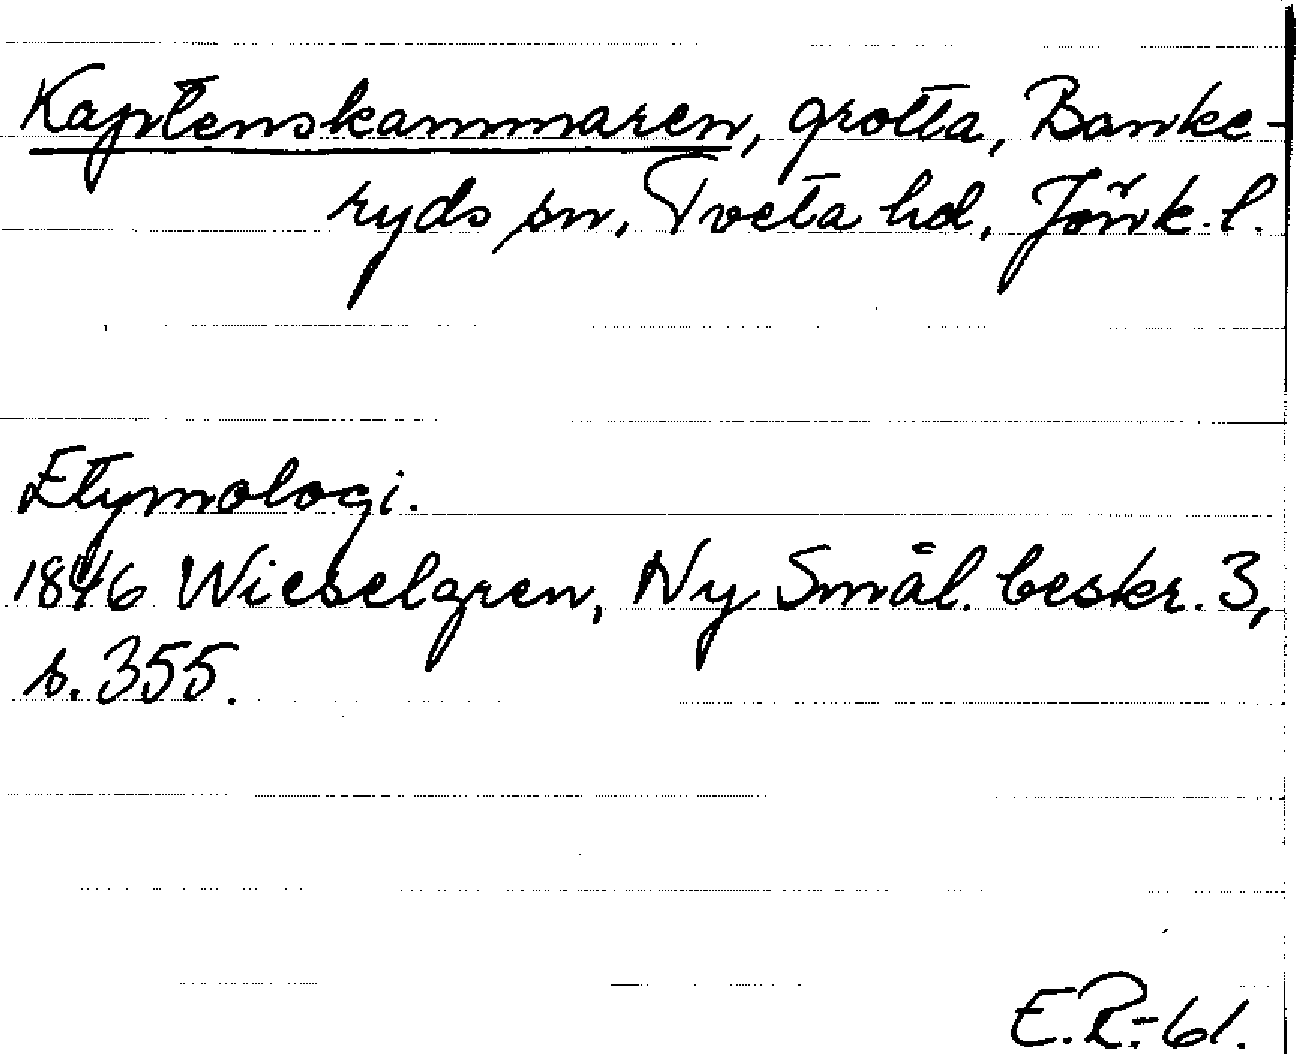 Kaptenskammaren, grotta, Banke-
ryds sn, Tveta hd, Jönk. l.
Etymologi.
1846 Wieselgren, Ny Smål. beskr. 3,
s. 355.
E.R.-61.